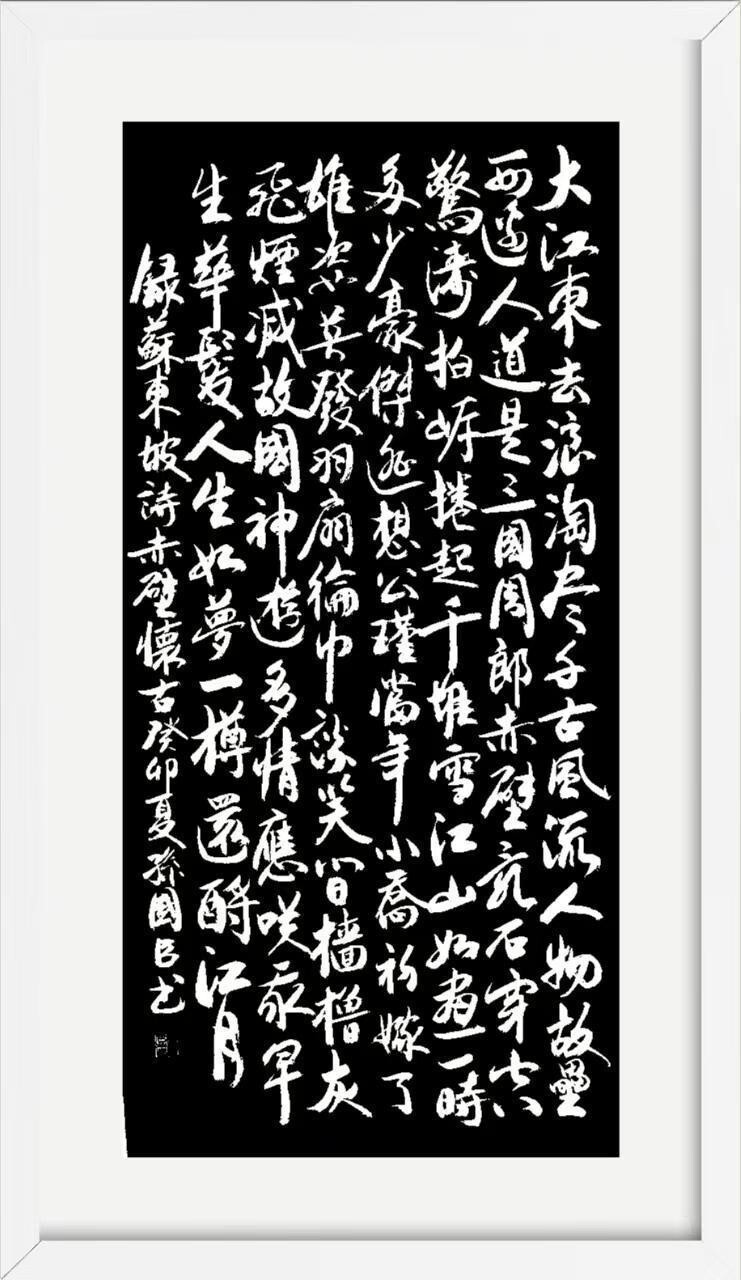 大江東去浪淘尽千古風流人物故壘
西邊人道是三國周郎赤壁亂石穿空
驚濤拍岸捲起千堆雪江山如畫一時
多少豪傑遥想公瑾當年小喬初嫁了
雄姿英發羽扇綸巾談笑間檣櫓灰
飛煙滅故國神遊多情應咲我早
生華髮人生如夢一樽還酹江月
錄蘇東坡詩赤壁懷古癸卯夏孫國书